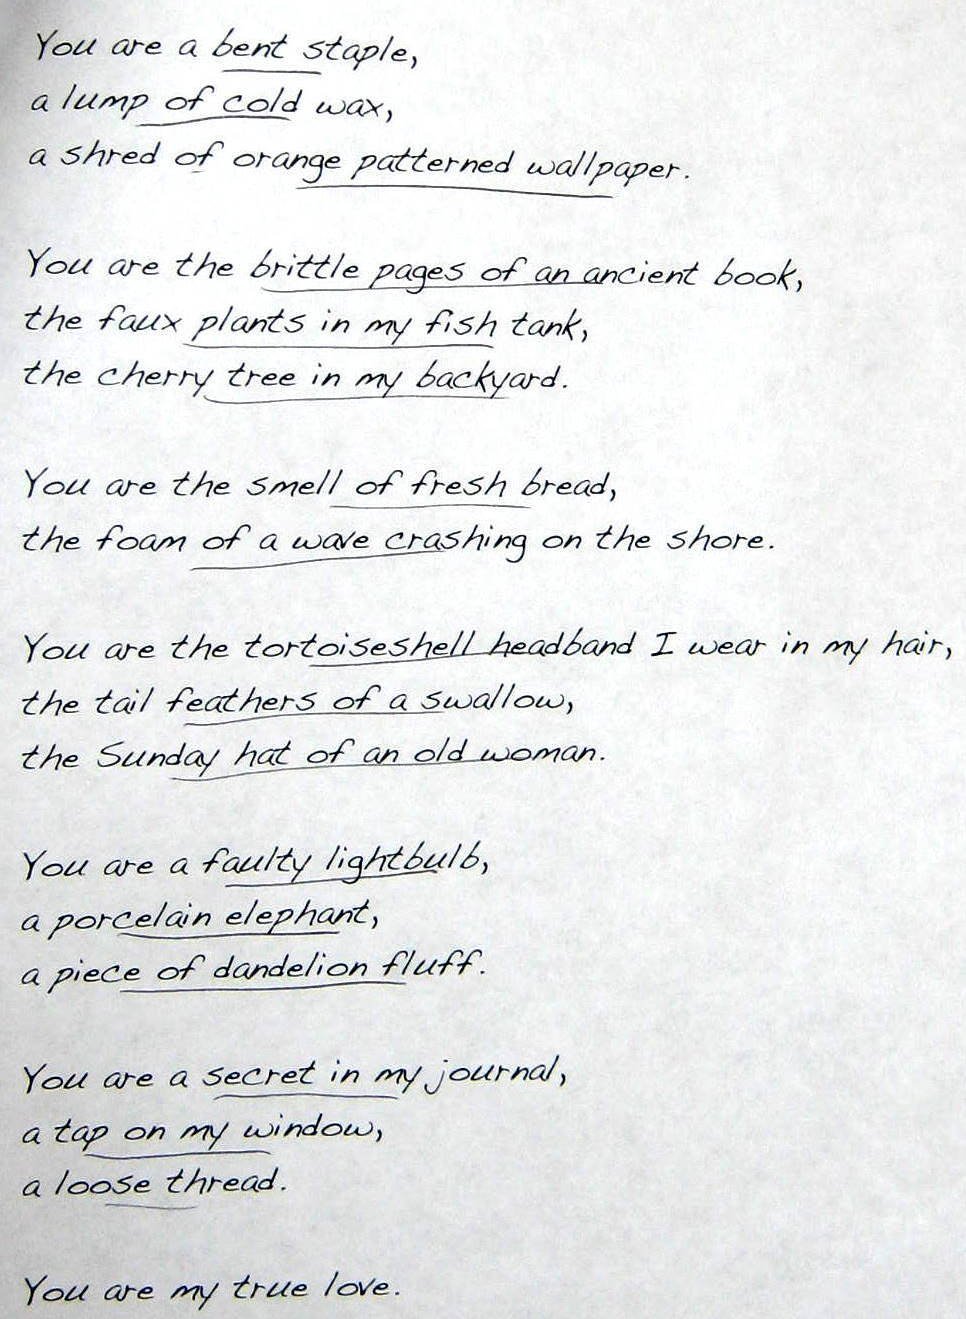 You are a bent staple,
a lump of cold wax,
a shred of orange patterned wallpaper.
You are the brittle pages of an ancient book,
the faux plants in my fish tank,
the cherry tree in my backyard.
You are the smell of fresh bread,
the foam of a wave crashing on the shore.
You are the tortoiseshell headband I wear in my hair,
the tail feathers of a swallow,
the Sunday hat of an old woman.
You are a faulty lightbulb,
a porcelain elephant,
a piece of dandelion fluff.
You are a secret in my journal,
a tap on my window,
a loose thread.
You are my true love.